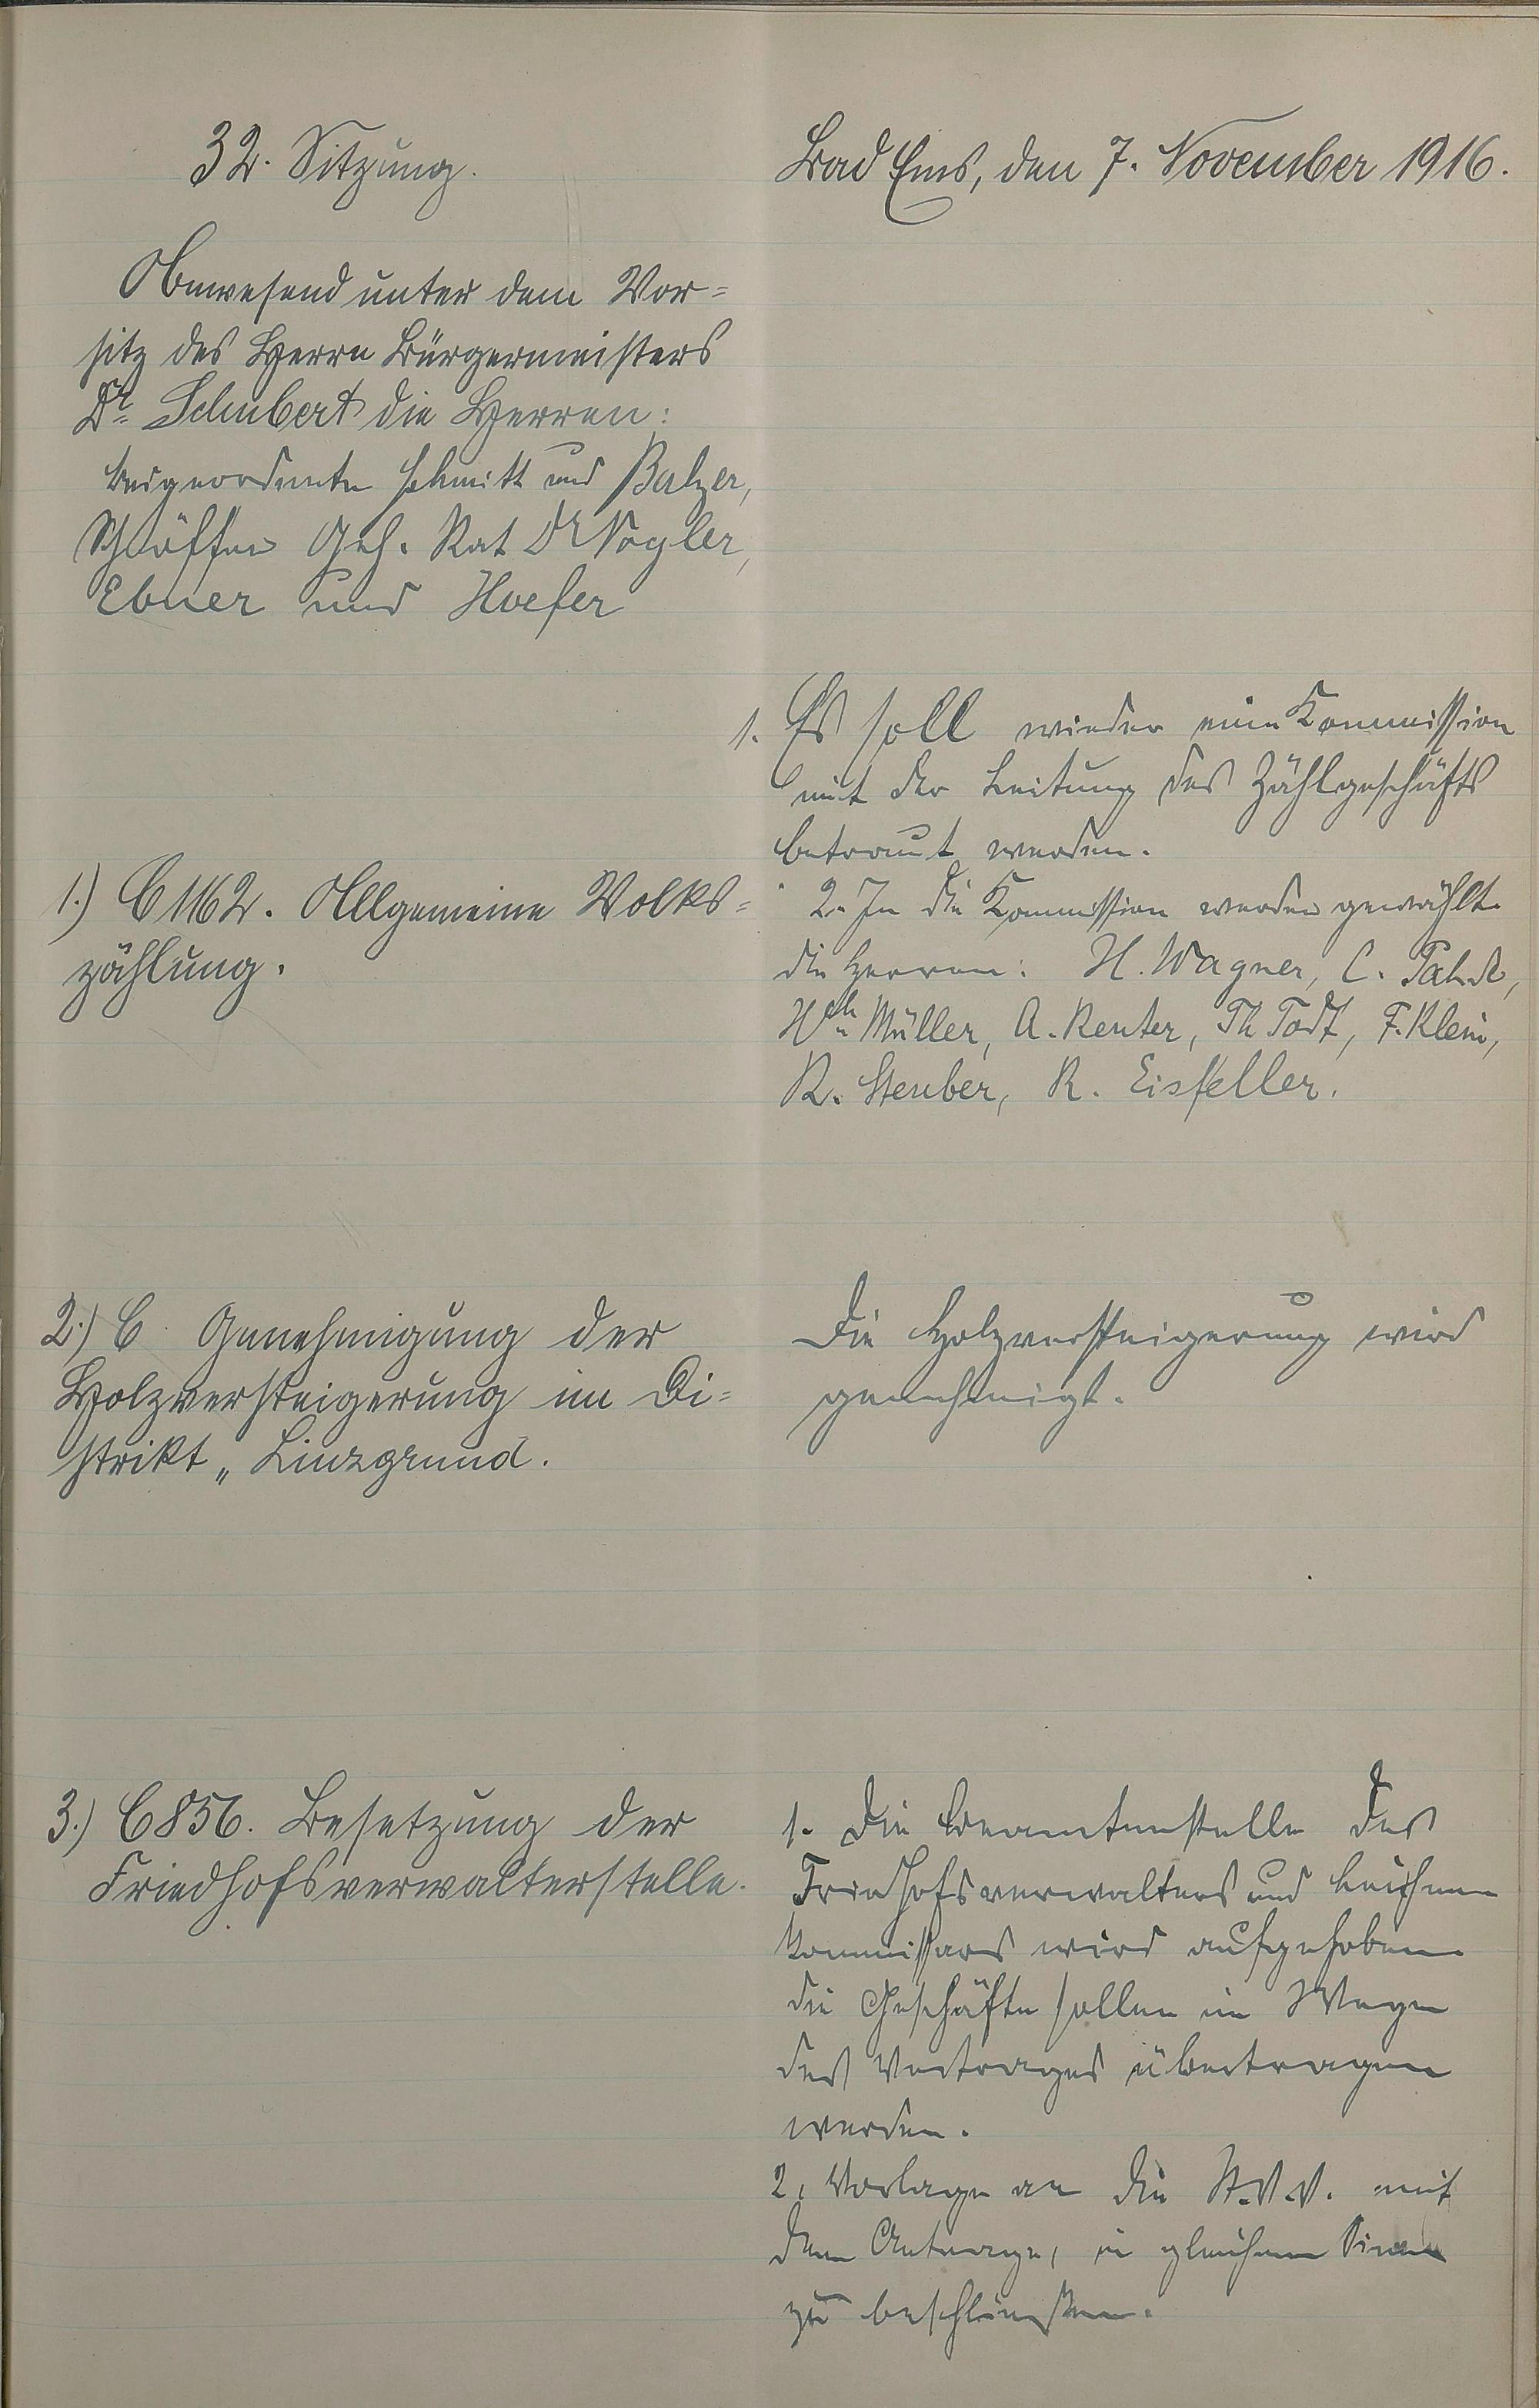 32. Sitzung.
Bad Ems, den 7. November 1916.
Anwesend unter dem Vor=
sitz des Herrn Bürgermeisters
Dr. Schubert die Herren:
Beigeordnete Schmitt und Balzer,
Schöffen Geh. Rat Dr Vogler,
Ebner und Hoefer
1.) C 1162. Allgemeine Volks=
zählung.
1. Es soll wieder eine Kommission
mit der Leitung des Zählgeschäfts
betraut werden.
2. In die Kommission werden gewählt
die Herren: H. Wagner, C.
Wh. Müller, A. Reuter, Th. Todt, F. Klein,
R. Steuber, R. Eisfeller.
2.) C Genehmigung der
Holzversteigerung im Di=
strikt „Linzgrund.
Die Holzversteigerung wird
genehmigt.
3.) C 856. Besetzung der
Friedhofsverwalterstelle.
1. Die Beamtenstelle des
Friedhofsverwalters und Leichen
kommissars wird aufgehoben
die Geschäfte sollen im Wege
des Vertrages übertragen
werden.
2. Vorlage an die St.V.V. mit
dem Antrage, in gleichem Sinne
zu beschließen.